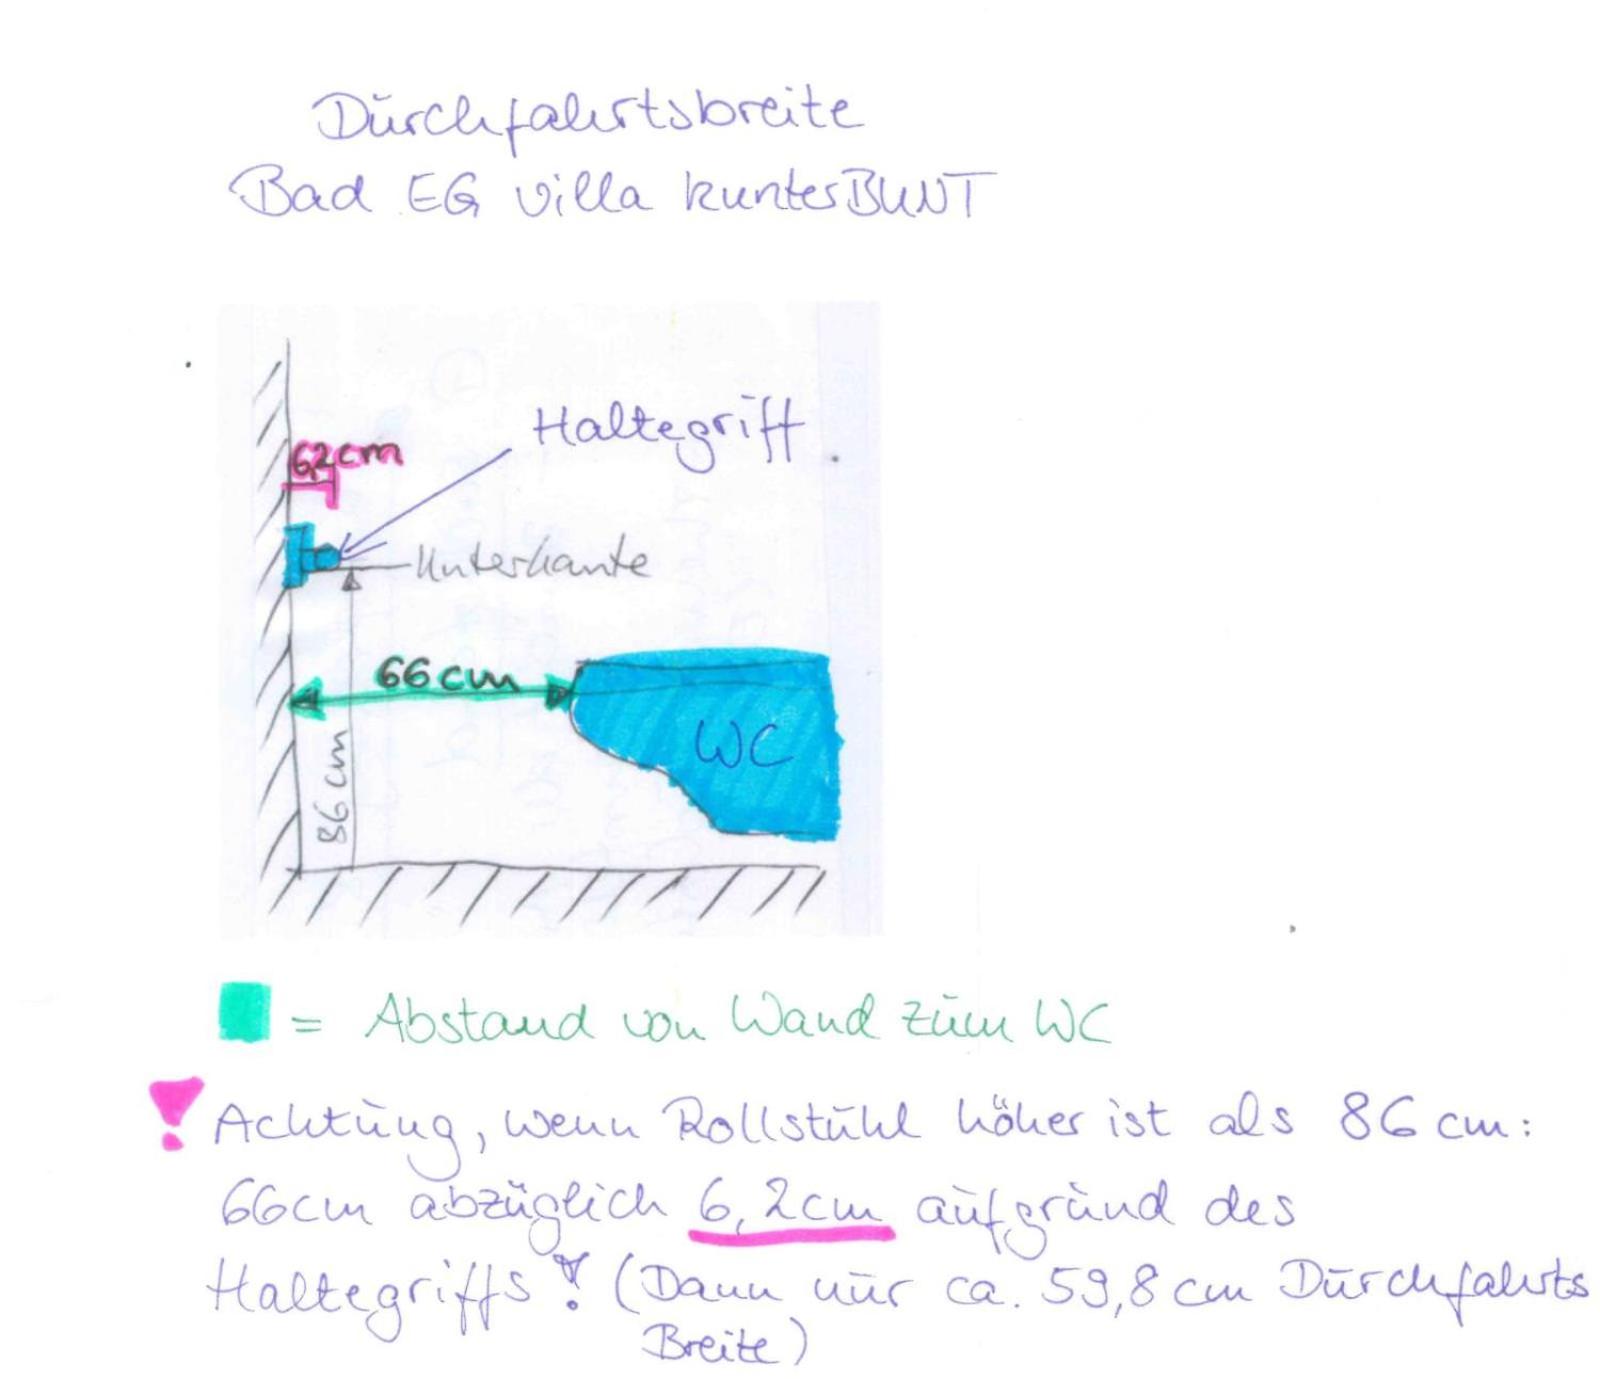 Durchfahrtsbreite
Bad EG Villa kunterBUNT
Haltegriff
6,2cm
Unterkante
66cm
WC
86cm
= Abstand von Wand zum WC
! Achtung, wenn Rollstuhl höher ist als 86 cm:
66cm abzüglich 6,2cm aufgrund des
Haltegriffs! (Dann nur ca. 59,8cm Durchfahrts
Breite)